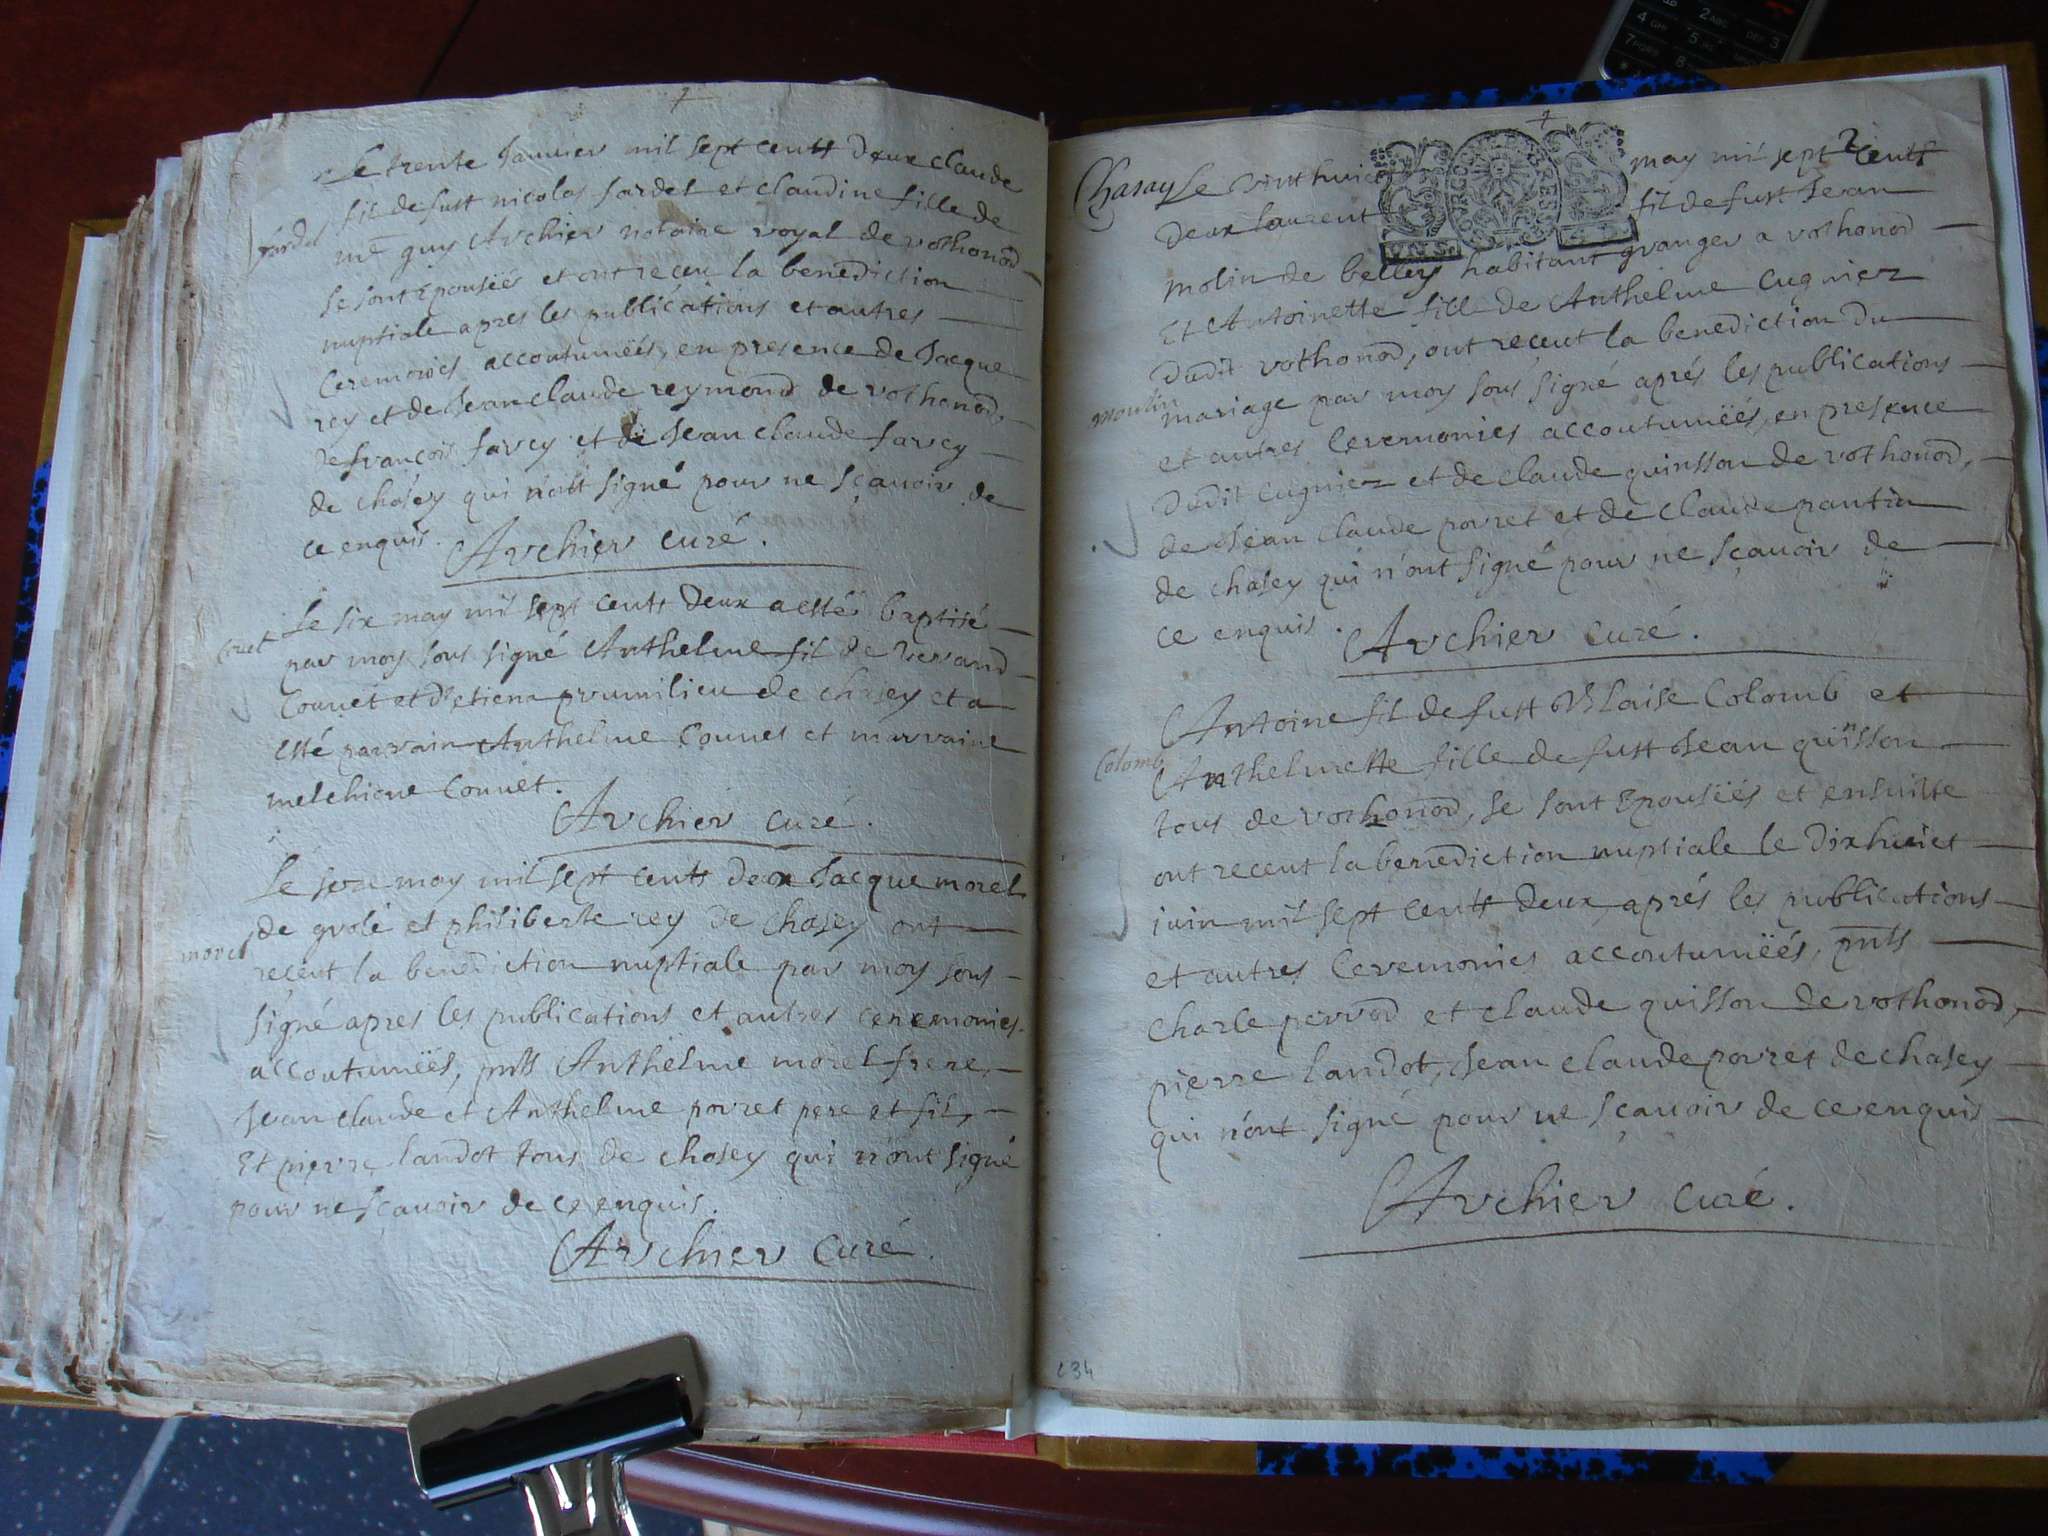 Le trente Janvier mil sept cents deux claude
fil de futt nicolas fardel et claudine fille de
fardel
me guy Archier notaire royal de vothonod
se sont Epousëés et ont receu la benediction
nuptiale apres les publications et autres
Ceremonies accoutumëés, en presence de Jacque
rey et de Jean claude reymond de vothonod,
de françois farcy et de Jean claude farcy
de chosey qui n'ont signé pour ne sçavoir de
ce enquis.
Archier curé.
Le six may mil sept cents deux a esté baptisé
par moy sous signé Anthelme fil de
Couvet et d'etiena prumilieu de chosey et a
esté parrain Anthelme Couvet et marraine
melchione Couvet.
Archier curé.
Le may mil sept cents deux Jacque morel
de grolé et philiberte rey de chosey ont
morel
receut la benediction nuptiale par moy sous
signé apres les publications et autres ceremonies
accoutumëés, pnts Anthelme morel frere,
Jean claude et Anthelme porret pere et fil,
Et pierre landot tous de chosey qui n'ont signé
pour ne sçavoir de ce enquis.
Archier Curé.
Chasay Le vinthuict may mil sept cents
2
deux laurent fil de futt Jean
molin de belley habitant granger a vothonod
Et Antoinette fille de Anthelme Cugniez
dudit vothonod, ont receut la benediction du
moulin
mariage par moy sous signé aprés les publications
et autres Ceremonies accoutumëés, en presence
dudit cugniez et de claude quinsson de vothonod,
de Jean claude porret et de claude pantin
de chosey qui n'ont signé pour ne sçavoir de
ce enquis.
Archier curé.
Antoine fil de futt Blaise Colomb et
Colomb
Anthelmette fille de futt Jean quinsson
tous de vothonod, se sont Epousëés et ensuitte
ont receut la benediction nuptiale le dixhuict
juin mil sept cents deux, aprés les publications
et autres Ceremonies accoutumëés, pnts
Charle perrod et claude quisson de vothonod,
pierre landot, Jean claude porret de chasey
qui n'ont signé pour ne sçavoir de ce enquis
Archier curé.
234